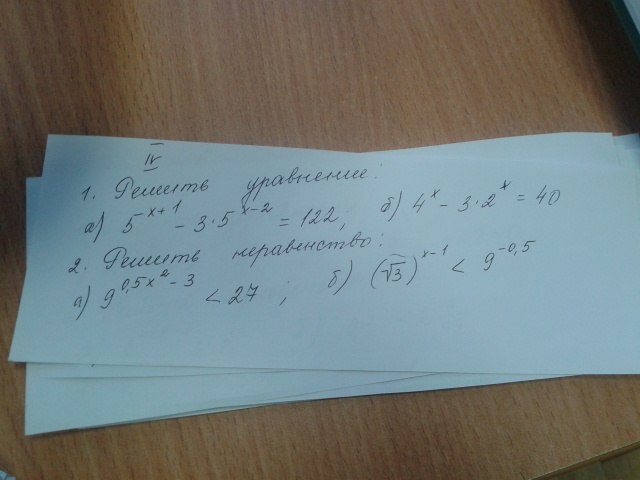 IV
1. Решить уравнение:
а) 5^{x+1} - 3·5^{x-2} = 122; б) 4^x - 3·2^x = 40
2. Решить неравенство:
а) 9^{0,5x^2-3} < 27; б) (√3)^{x-1} < 9^{-0,5}